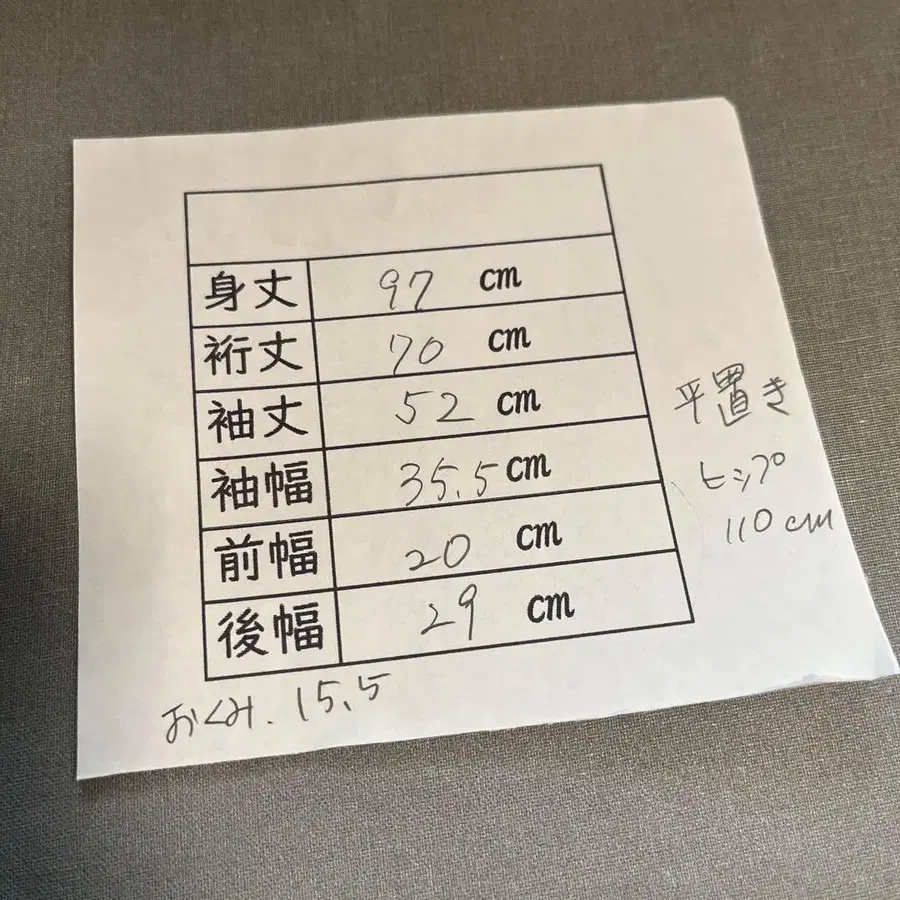 身丈 97 cm
裄丈 70 cm
袖丈 52 cm
袖幅 35.5 cm
前幅 20 cm
後幅 29 cm
おくみ. 15.5
平置き
ヒップ
110 cm